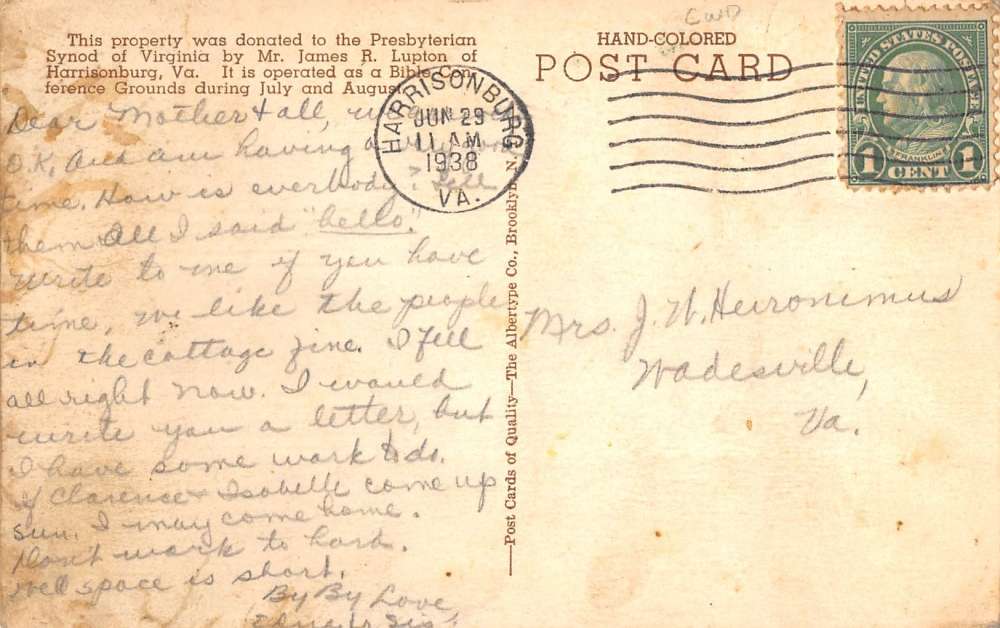 This property was donated to the Presbyterian
Synod of Virginia by Mr. James R. Lupton of
Harrisonburg, Va. It is operated as a Bible Con-
ference Grounds during July and August.
Dear Mother & all,
O.K. and am having a
time. How is everbody? Tell
them all I said "hello."
Write to me if you have
time, we like the people
in the cottage fine. I fell
all right now. I would
write you a letter, but
I have some work to do.
if Clarence & Isabelle come up
Sun. I may come home.
Don't work to hard.
Well space is short.
By By Love,
Sis.
Post Cards of Quality—The Albertype Co., Brooklyn, N.
HARRISONBURG
JUN 29
11 AM
1938
VA.
HAND-COLORED
POST CARD
UNITED STATES POSTAGE
FRANKLIN
1 CENT 1
Mrs. J. W. Heironimus
Wadesville,
Va.